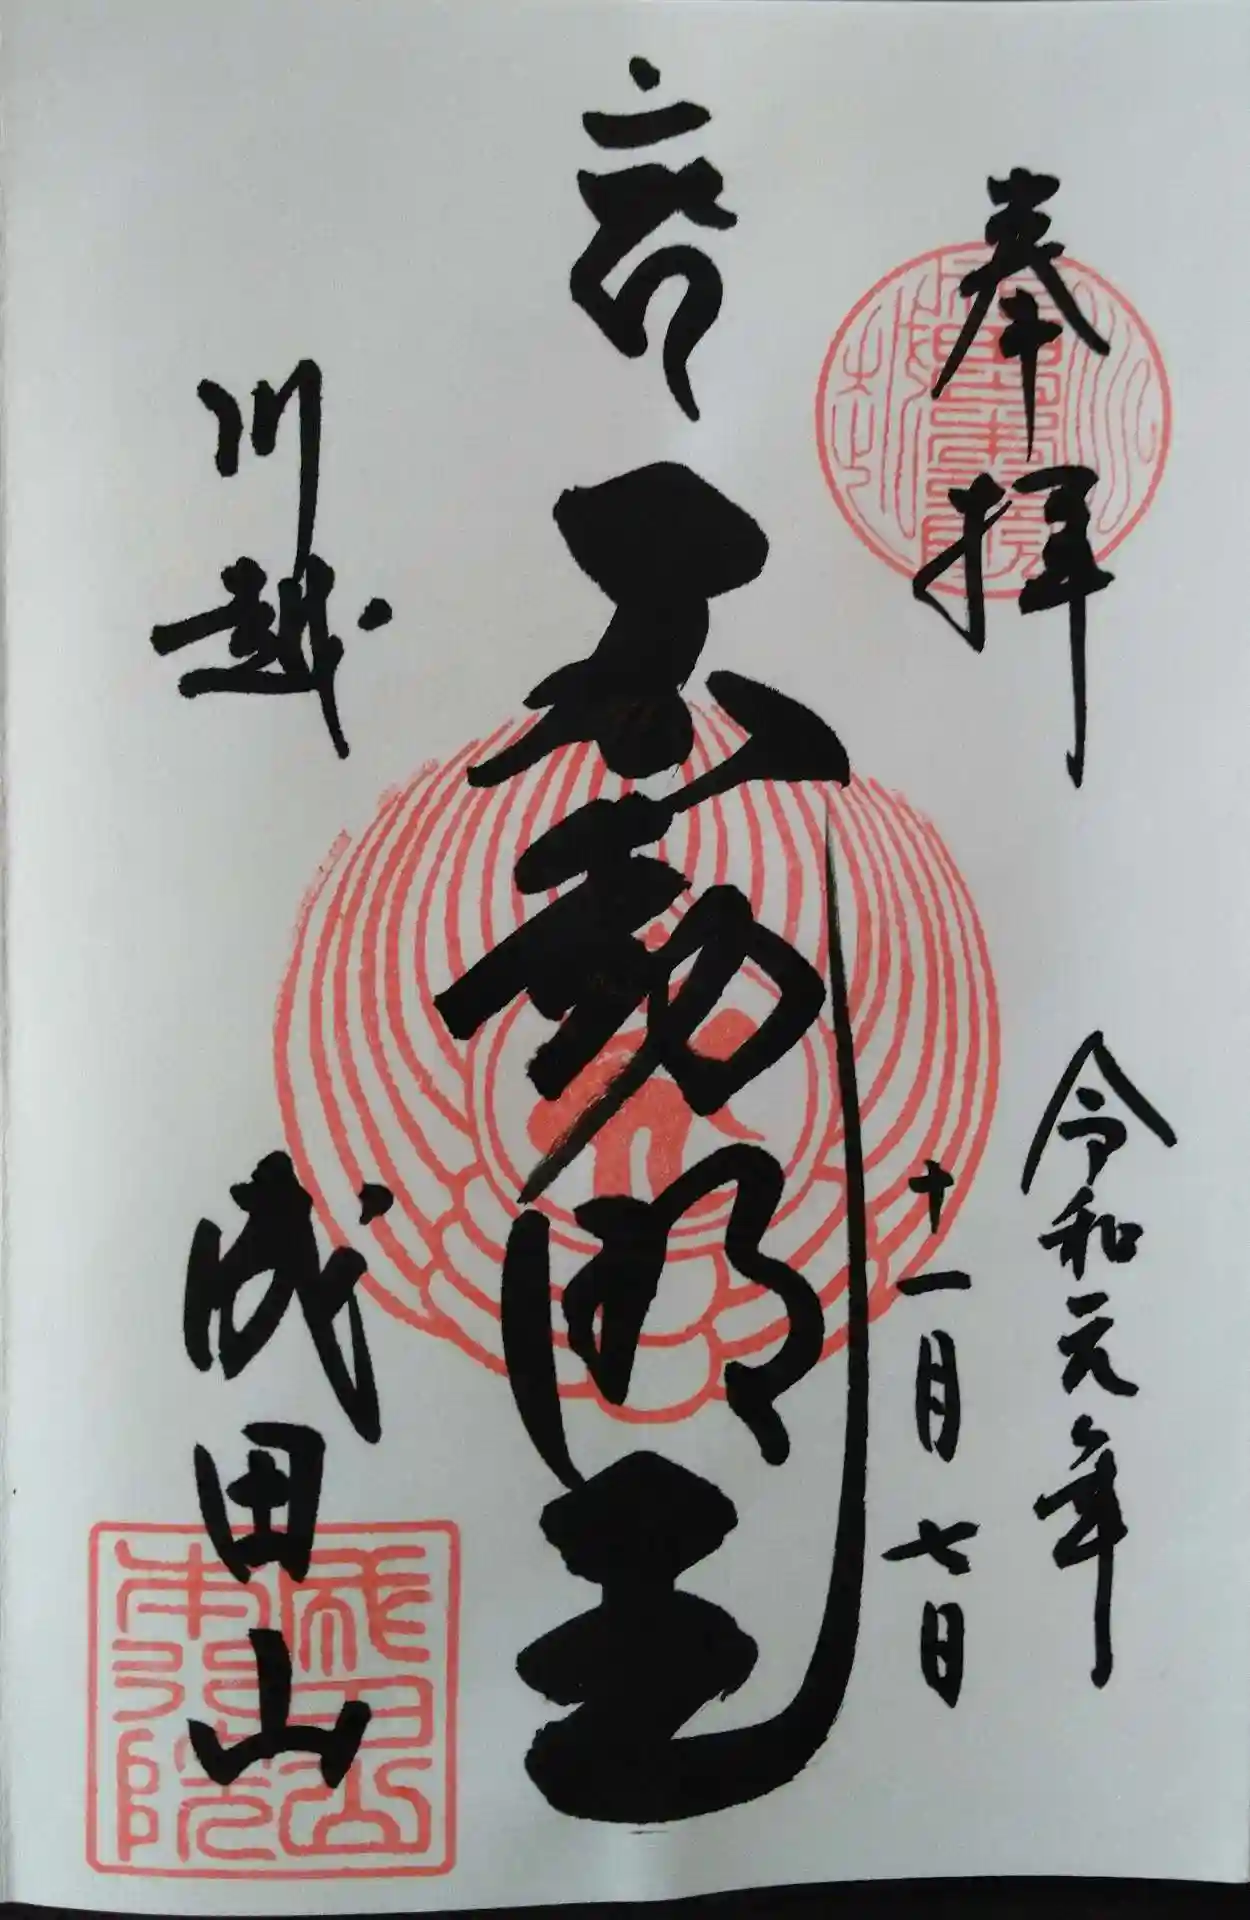 奉拝
令和元年
十一月七日
不動明王
川越
成田山
成田山
本行院